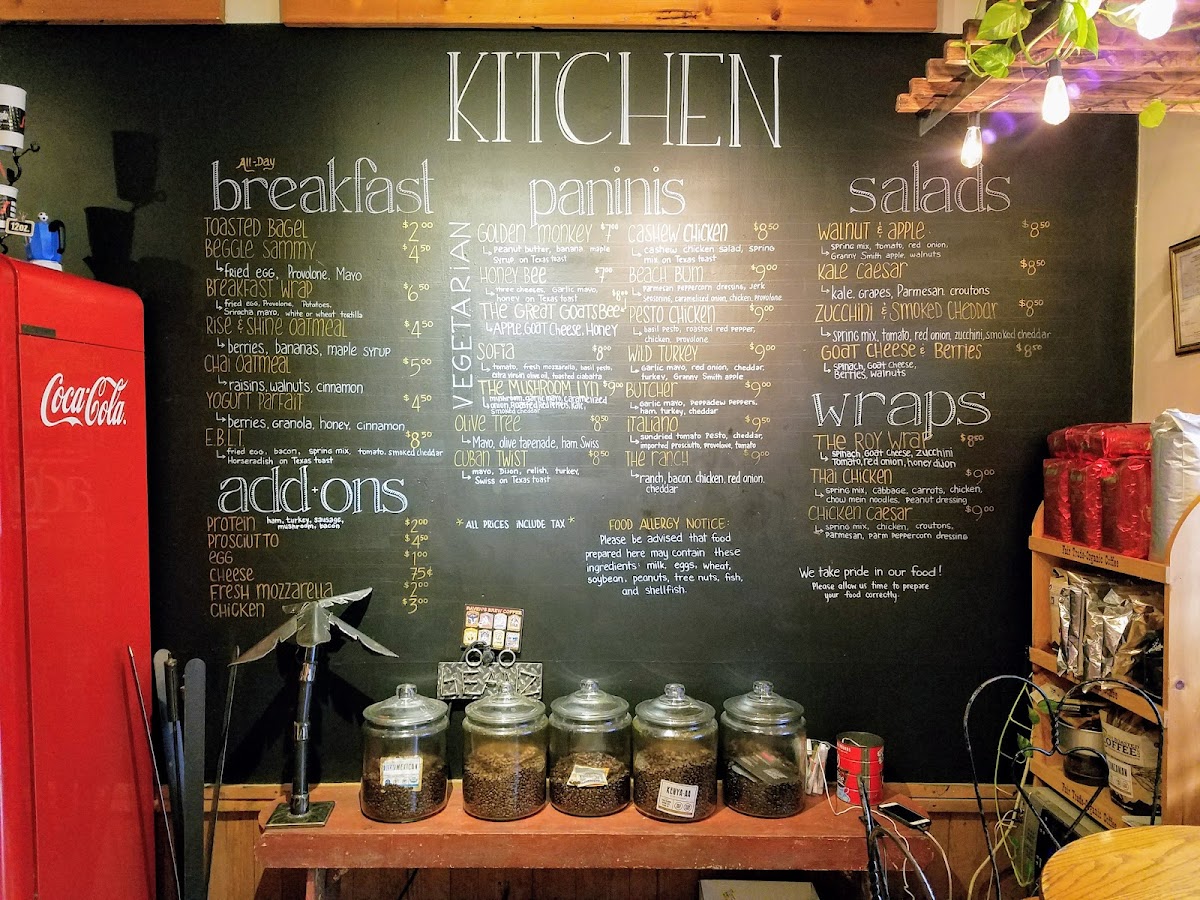 KITCHEN
All-Day
breakfast
TOASTED BAGEL $2.00
BEGGIE SAMMY $4.50
fried egg, Provolone, Mayo
BREAKFAST WRAP $6.50
fried egg, Provolone, Potatoes,
Sriracha mayo, white or wheat tortilla
RISE & SHINE OATMEAL $4.50
berries, bananas, maple syrup
CHAI OATMEAL $5.00
raisins, walnuts, cinnamon
YOGURT PARFAIT $4.50
berries, granola, honey, cinnamon
E.B.L.T $8.50
fried egg, bacon, spring mix, tomato, smoked cheddar
Horseradish on Texas toast
add-ons
PROTEIN ham, turkey, sausage, $2.00
mushroom, bacon
PROSCIUTTO $4.50
EGG $1.00
CHEESE 75¢
FRESH MOZZARELLA $2.00
CHICKEN $3.00
paninis
VEGETARIAN
GOLDEN MONKEY $7.00
Peanut butter, banana, maple
syrup on Texas toast
HONEY BEE $7.00
three cheeses, garlic mayo,
honey on Texas toast
THE GREAT GOATSBEE $8.00
APPLE, GOAT CHEESE, HONEY
SOFIA $8.00
tomato, fresh mozzarella, basil pesto,
extra virgin olive oil, toasted ciabatta
THE MUSHROOM LYN $9.00
mushroom, garlic mayo, caramelized
onion, Roasted Red Peppers, Kale,
Smoked cheddar
OLIVE TREE $8.50
Mayo, olive tapenade, ham, Swiss
CUBAN TWIST $8.50
mayo, Dijon, relish, turkey,
Swiss on Texas toast
CASHEW CHICKEN $8.50
cashew chicken salad, spring
mix on Texas toast
BEACH BUM $9.00
Parmesan peppercorn dressing, jerk
seasoning, caramelized onion, chicken, provolone
PESTO CHICKEN $9.00
basil pesto, roasted red pepper,
chicken, provolone
WILD TURKEY $9.00
garlic mayo, red onion, cheddar,
turkey, Granny Smith apple
BUTCHER $9.00
garlic mayo, Peppadew peppers,
ham, turkey, cheddar
ITALIANO $9.50
sundried tomato pesto, cheddar,
imported prosciutto, provolone, tomato
THE RANCH $9.00
ranch, bacon, chicken, red onion,
cheddar
*ALL PRICES INCLUDE TAX*
FOOD ALLERGY NOTICE:
Please be advised that food
prepared here may contain these
ingredients: milk, eggs, wheat,
soybean, peanuts, tree nuts, fish,
and shellfish.
salads
WALNUT & APPLE $8.50
spring mix, tomato, red onion,
Granny Smith apple, walnuts
KALE CAESAR $8.50
kale, grapes, Parmesan, croutons
ZUCCHINI & SMOKED CHEDDAR $8.50
spring mix, tomato, red onion, zucchini, smoked cheddar
GOAT CHEESE & BERRIES $8.50
spinach, Goat Cheese,
Berries, walnuts
wraps
THE ROY WRAP $8.50
spinach, Goat Cheese, zucchini
Tomato, red onion, honey dijon
THAI CHICKEN $9.00
spring mix, cabbage, carrots, chicken,
chow mein noodles, Peanut dressing
CHICKEN CAESAR $9.00
spring mix, chicken, croutons,
Parmesan, Parm Peppercorn dressing
We take pride in our food!
Please allow us time to prepare
your food correctly.
12oz.
Coca-Cola
RAVEN'S BREW COFFEE
BEANZ
KENYA AA
Fair Trade-Organic Coffee
COFFEE
Fair Trade-Organic Coffee